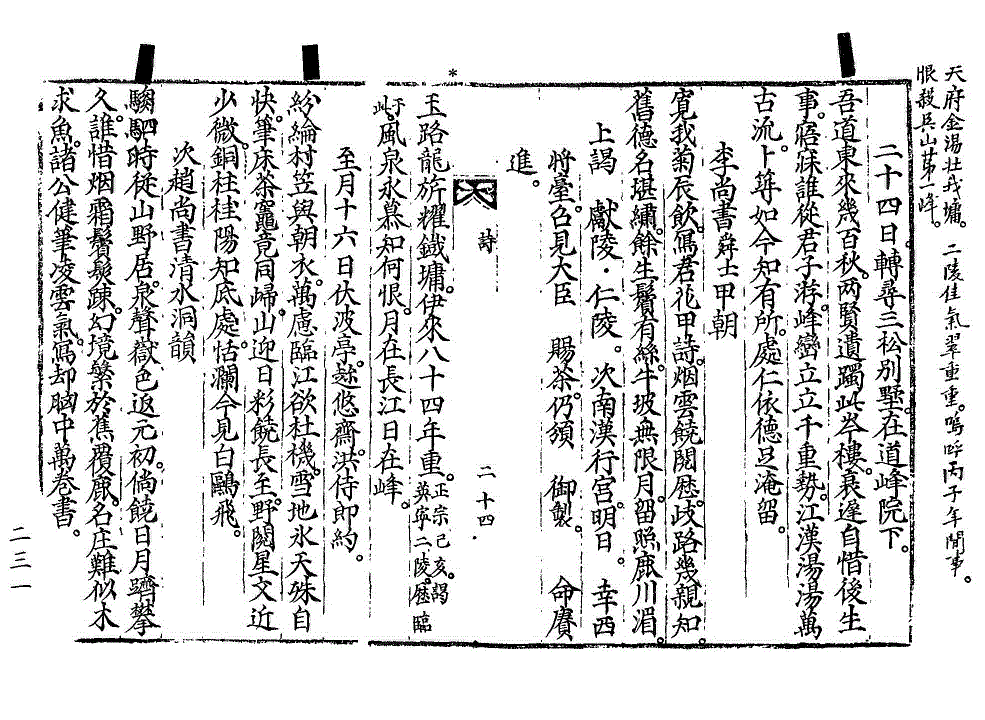 天府金湯壯戎墉。二陵佳氣翠重重。嗚呼丙子年間事。
眼殺吳山第一峰。
二十四日轉尋三松別墅。在道峰院下。
吾道東來幾百秋。兩賢遺躅此岑樓。衰遲自惜後生
事。寤寐誰從君子游。峰巒立立千重勢。江漢湯湯萬
古流。卜築如今知有所。處仁依德足淹留。
李尚書舜士甲朝
寬我菊辰飲。寫君花甲詩。烟雲饒閱歷。歧路幾親知。
舊德名堪繡。餘生鬢有絲。牛坡無限月。留照鹿川湄。
上謁 獻陵·仁陵。次南漢行宮。明日 幸西
將臺。召見大臣 賜茶。仍頒 御製 命賡
進。
詩
二十四
玉路龍旂耀鐵墉。伊來八十四年重。正宗己亥。謁
英寧二陵。歷臨
于
此。風泉永慕知何恨。月在長江日在峰。
至月十六日伏波亭。趂悠齋洪侍郎約。
紛綸村笠與朝衣。萬慮臨江欲杜機。雪地氷天殊自
快。筆床茶竈竟同歸。山迎日彩饒長至。野闊星文近
少微。銅柱桂陽知底處。恬瀾今見白鷗飛。
次趙尚書清水洞韻
騶駟時從山野居。泉聲嶽色返元初。倘饒日月躋攀
久。誰惜烟霜鬢髮踈。幻境繁於蕉覆鹿。名庄難似木
求魚。諸公健筆凌雲氣。寫却胸中萬卷書。
二三一